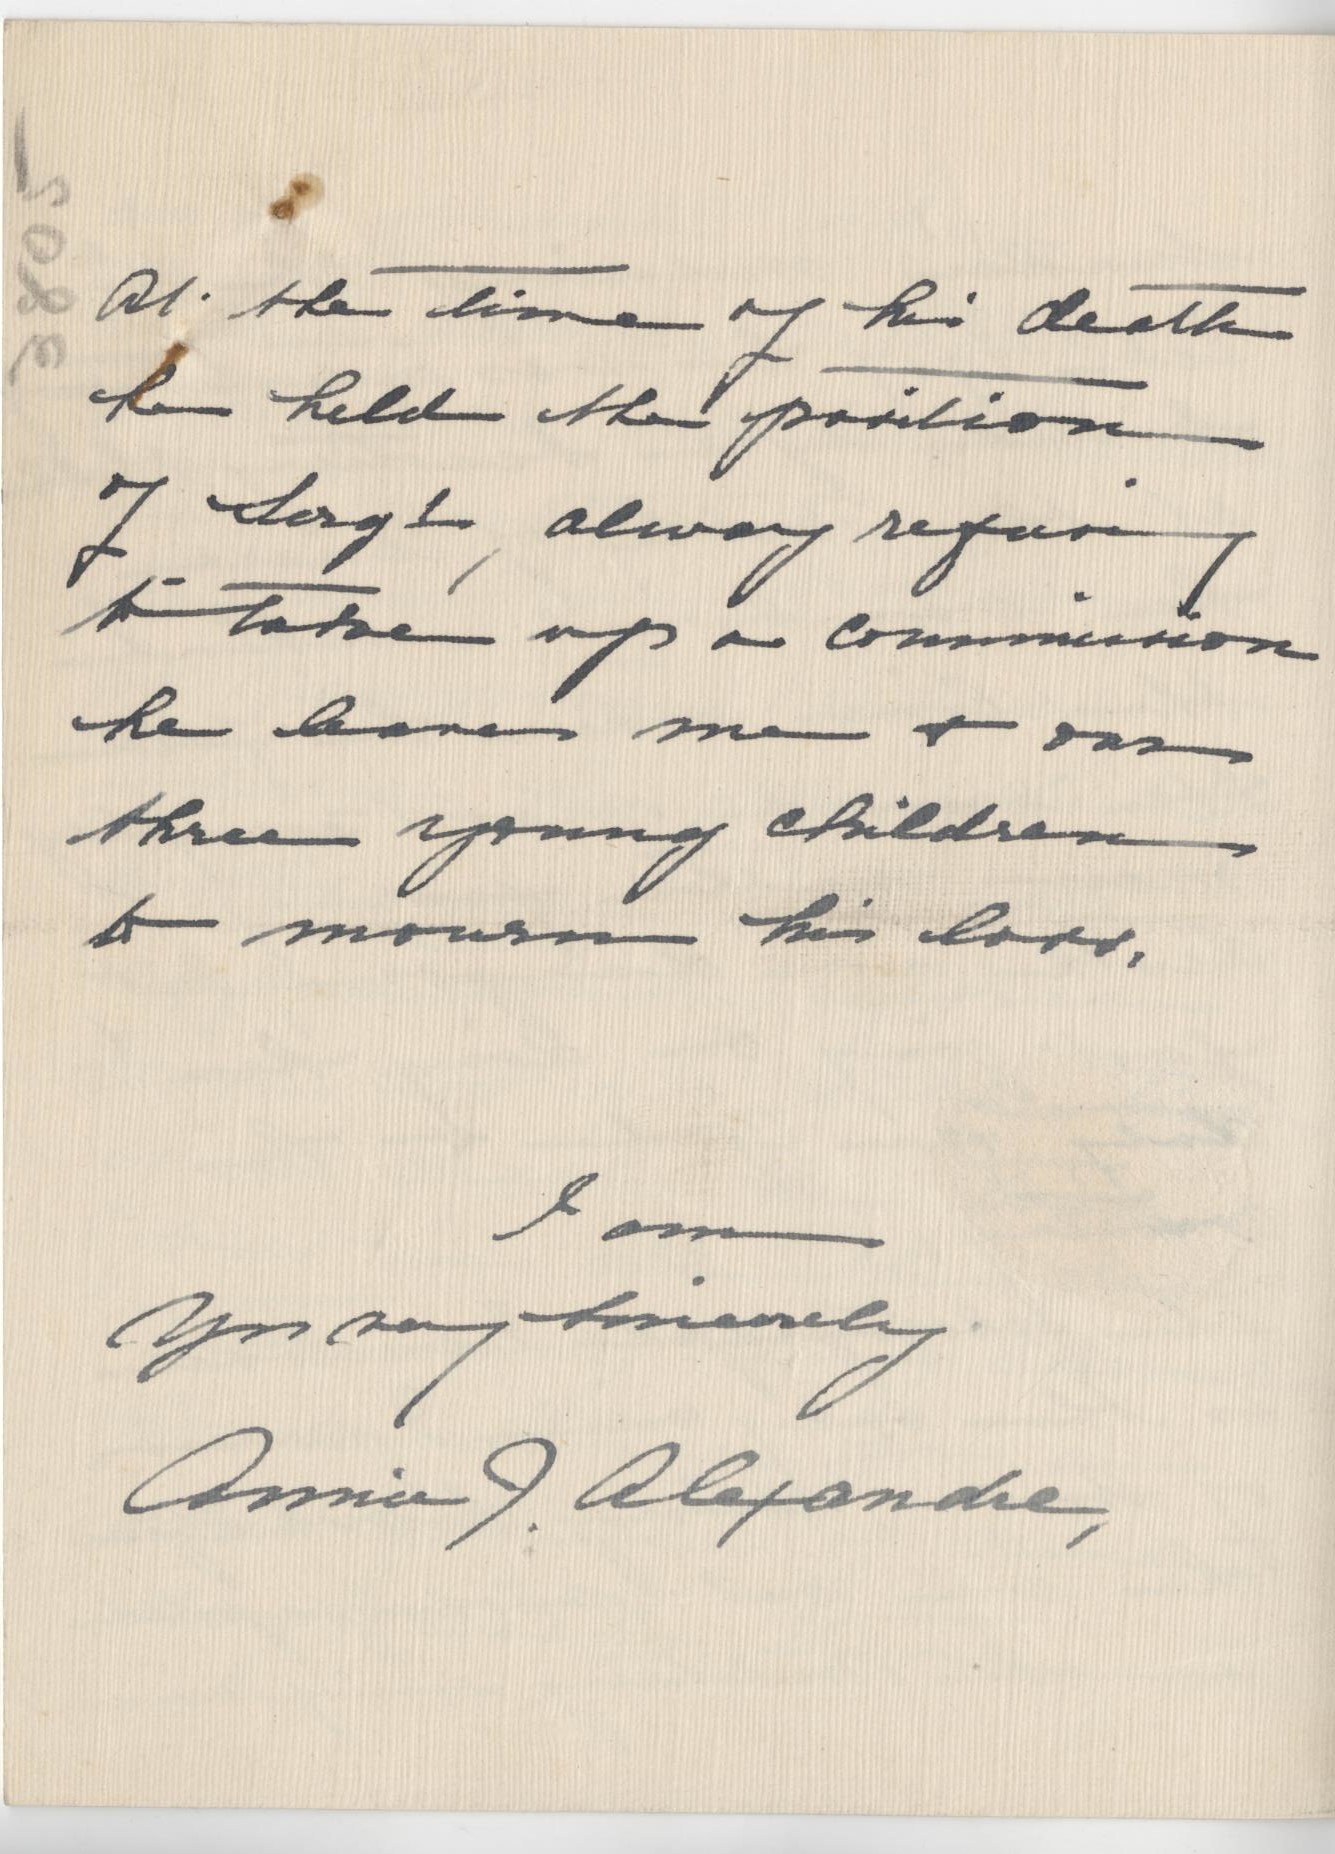 3805
At the time of his death
he held the position
of Sergt, always refusing
to take up a commission
he leaves me & our
three young children
to mourn his loss.
I am
Yrs very sincerely
Annie J. Alexandre,